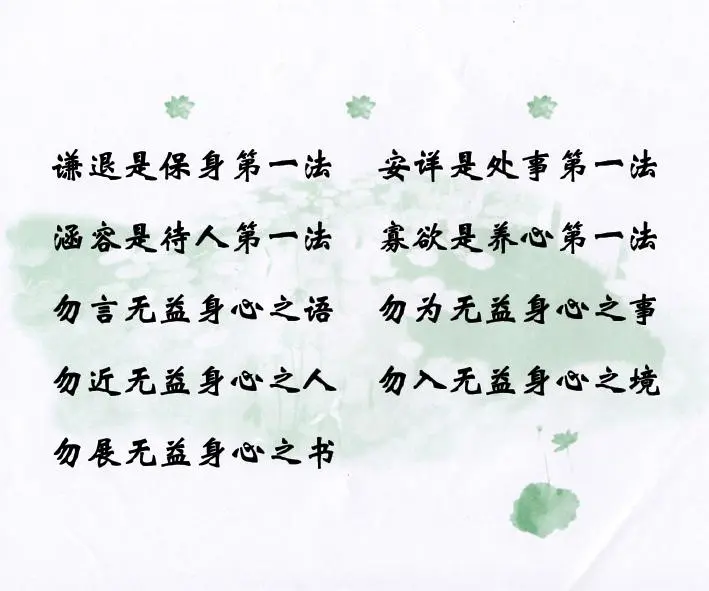 谦退是保身第一法 安详是处事第一法
涵容是待人第一法 寡欲是养心第一法
勿言无益身心之语 勿为无益身心之事
勿近无益身心之人 勿入无益身心之境
勿展无益身心之书